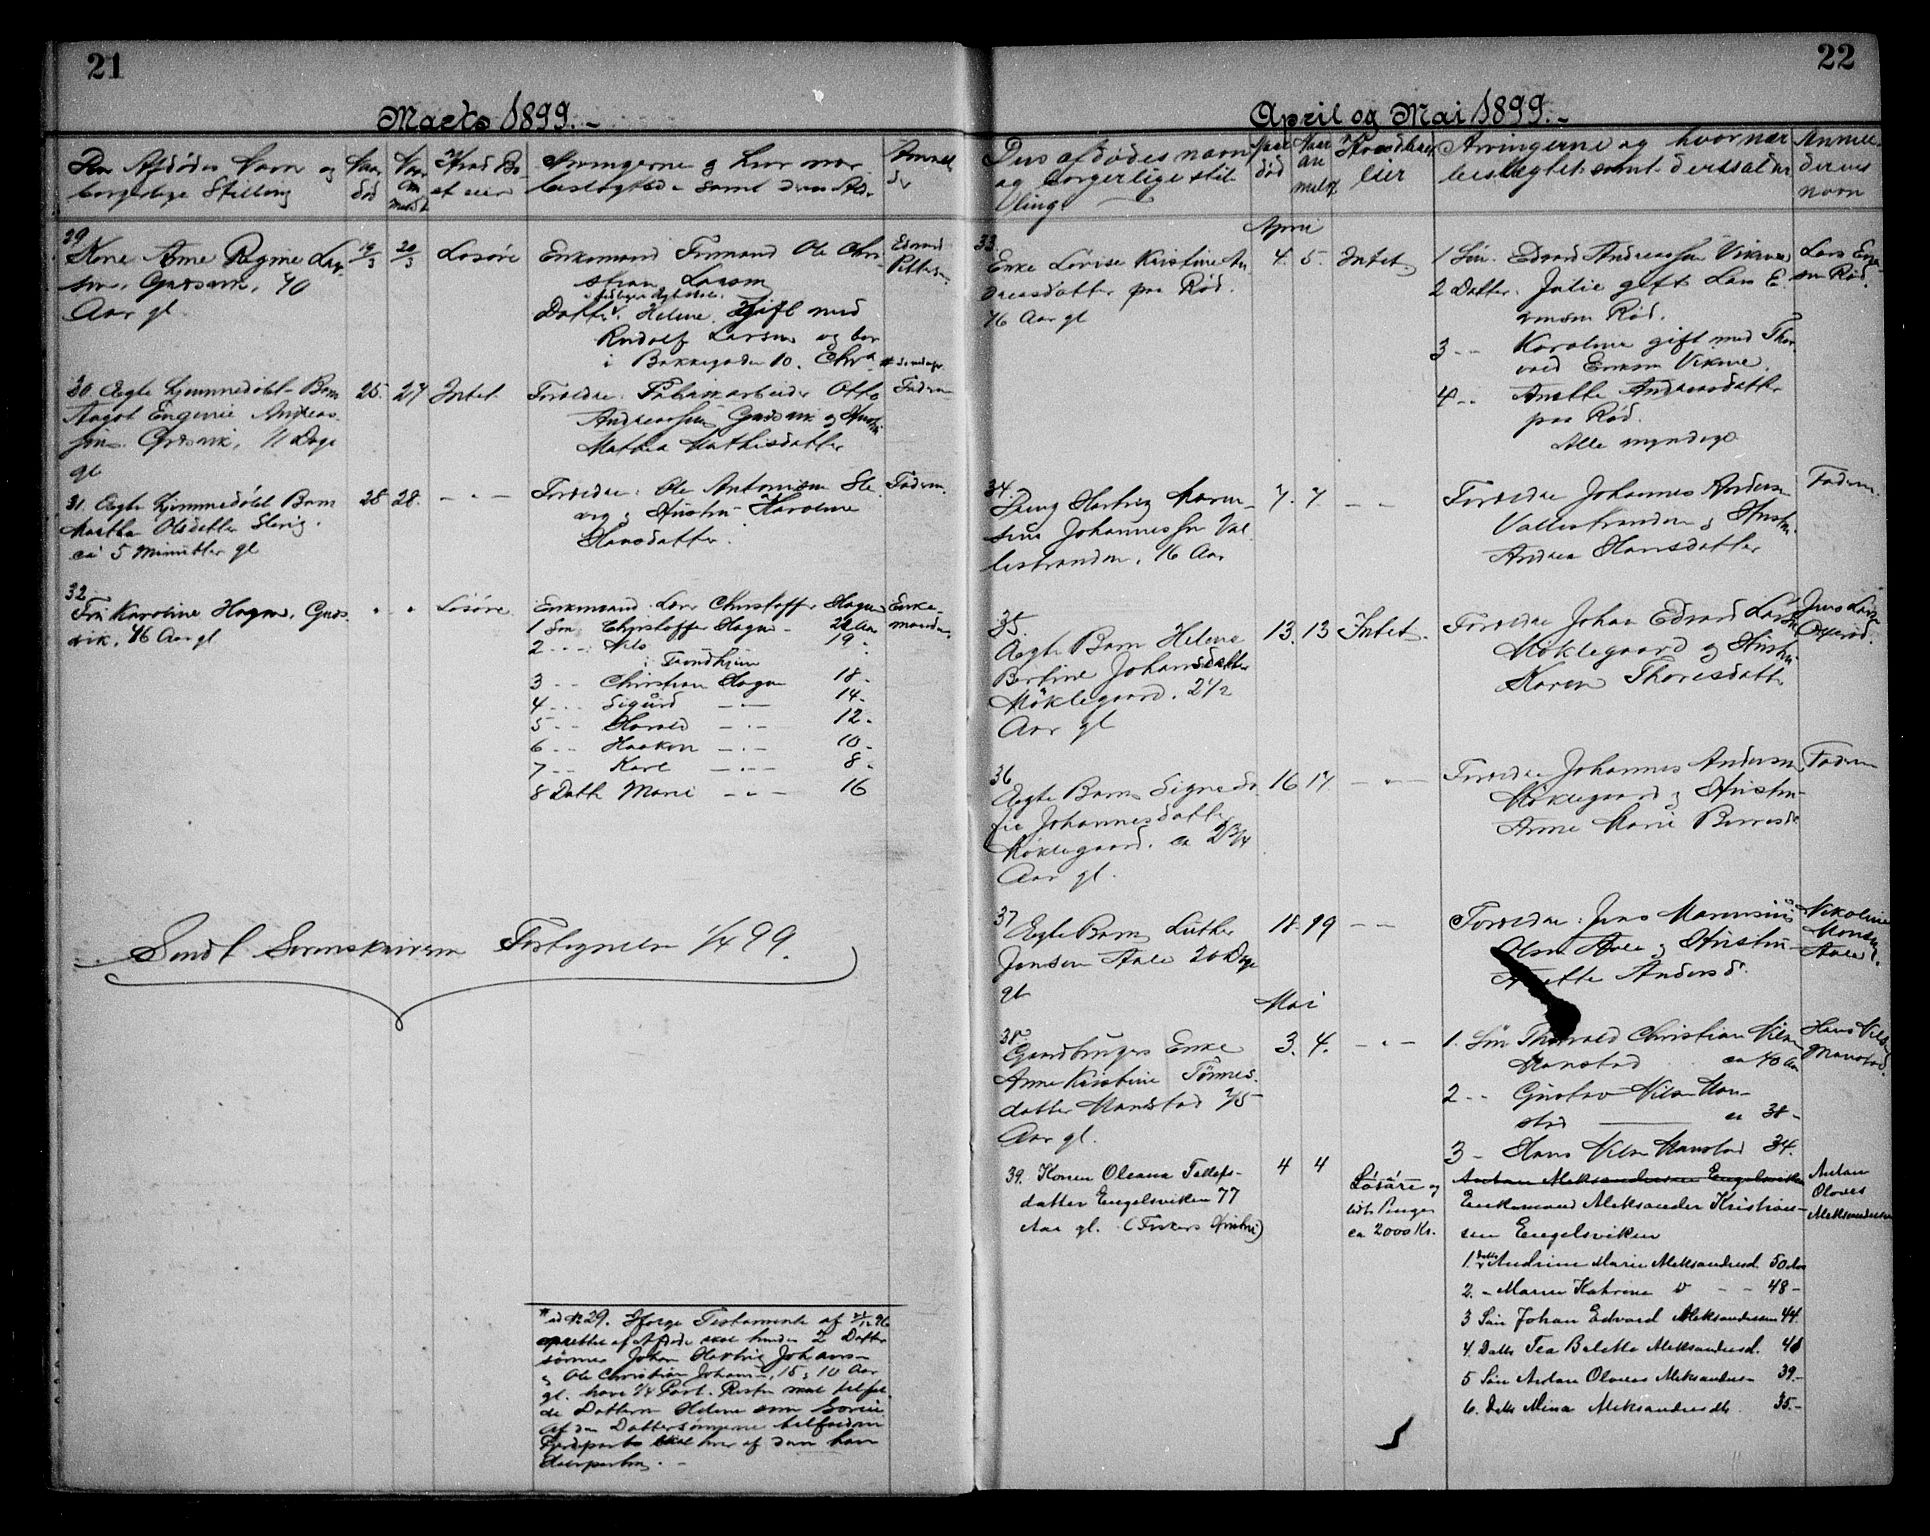 21
Marts 1899.-
Den Afdødes Navn og
borgerlige Stilling
Naar
død
Naar
an
meldt
Hvad Bo
et eier
Arvingerne og hvor nær
beslægtede samt deres Ald.
Anmel
der
29
Kone Anne Regine Lar
sen, Græsvik, 70
Aar gl.
19/3
20/3
Løsøre
Enkemand Formand Ole Chri-
stian Larsen
Datter Helene gift med
Rudolf Larsen og bor
i Bakkegaden 10. Chra
Edvard
Pettersen
30. Ægte hjemmedøbt Barn
Aagot Eugenie Andreas
sen Græsvik, 11 Dage
gl
25.
27
Intet
Forældre: Fabrikarbeider Otto
Andreassen Græsvik og Hustru
Mathea Mathisdatter
Faderen
31. Ægte hjemmedøbt Barn
Martha Olsdatter
ca 5 Minutter gl
28
28.
- " -
Forældre: Ole Antonisen
og Hustru Karoline
Hansdatter.
Faderen.
32
Fru Karoline Hagen, Græs
vik, 46 Aar gl
"
"
Løsøre
Enkemand Lars Christoffer Hagen
1 Søn Christoffer Hagen - 22 Aar
2 - - Nils 19 -
i Trondhjem
3 - - Christian Hagen 18 -
4 - - Sigurd - " - 14 -
5 - - Harald - " - 12 -
6 - - Haakon - " - 10 -
7 - - Karl - " - 8 -
8 Datt. Marie - " - 16
Enke-
manden
Sendt Sorenskriveren Fortegnelse 1/4 99.
* ad No 29. Ifølge Testamente af
oprettet af Afdøde skal hendes 2 Datter
sønner Johan Hartvig Johans-
og Ole Christian Johansen, 15 og 10 Aar
gl. have 1/4 Part. Resten skal tilfal
de Datteren Helene som
af den Dattersønnerne tilfaldne
Fjerdepart skal hver af dem have
Halvparten. -
22
April og Mai 1899.-
Den afdødes navn
og borgerlige stil
ling
Naar
død
Naar
an
meldt
Hvad Bo
eier
Arvingerne og hvor nær
beslægtet samt derss alder
Anmel
dernes
navn
April
33.
Enke Lovise Kristine An
dreasdatter paa Rød.
76 Aar gl
4.
5.
Intet
1 Søn. Edvard Andreassen Vikene
2 Datter. Julie gift Lars E.
vensen Rød.
3 - - Karoline gift med Thor
vald Eriksen Vikene.
4 - - Anette Andreasdatter
paa Rød.
Alle myndige
Lars Even
sen Rød.
34.
Dreng Hartvig Maren-
sius Johannessen Val
lestranden. 16 Aar
7.
7.
- -
Forældre Johannes Andersen
Vallestranden og Hustru
Andrea Hansdatter
Faderen.
35.
Ægte Barn Helene
Bertine Johansdatter
Møklegaard. 2 1/2
Aar gl
13.
13
Intet.
Forældre Johan Edvard Larsen
Møklegaard og Hustru
Karen Thoresdatter
Jens Larsen
36
Ægte Barn Signe So
fie Johannesdatter
Møklegaard. ca 2 3/4
Aar gl.
16
17
- " -
Forældre Johannes Andersen
Møklegaard og Hustru
Anne Marie
Faderen
37
Ægte Barn Luther
Jensen Aale 20 Dage
gl
18.
19
- -
Forældre: Jens Marensius
Olsen Aale og Hustru
Anette Andersd.
Nikoline
Monsen
Aale
Mai
38.
Gaardbrugers Enke
Anne Kristine Tønnes
datter Manstad 75
Aar gl.
3.
4.
- " -
1. Søn Thorvald Christian Nilsen
Manstad ca 40 Aar
2 - - Gustav Nilsen Man
stad ca 38 -
3 - Hans Nilsen Manstad 34.
Hans Nilsen
Manstad.
39. Karen Oleana Tollefs-
datter Engelsviken 77
Aar gl. (Fiskers Hustru)
4
4
Løsøre og
lidt Penge
ca 2000 Kr.
Anton Aleksandersen Engelsviken
Enkemand Aleksander Kristian-
sen Engelsviken
1. Datter Andrine Marie Aleksandersd. 50 Aar
2. - Maren Katrine " - - 48 -
3 Søn Johan Edvard Aleksandersen 44.
4. Datt. Tea Bolette Aleksandersd. 41
5 Søn Anton Olavus Aleksandersen 39.-
6. Datt. Mina Aleksandersdtr. 35.-
Anton
Olavus
Aleksandersen